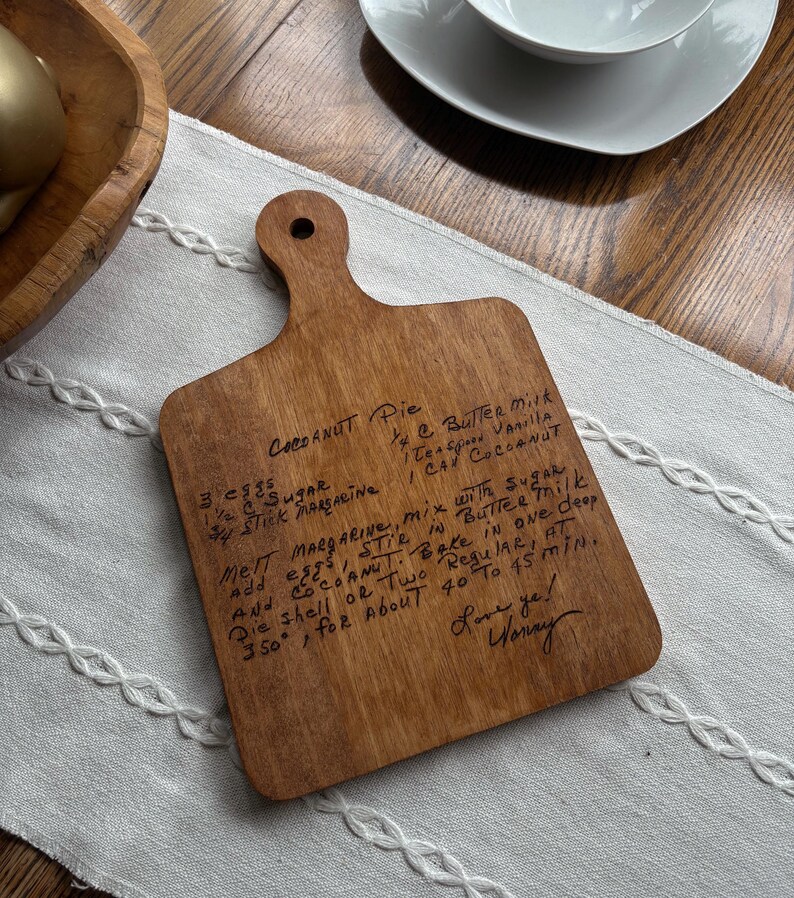 COCOANUT Pie
3 eggs
1 1/2 C SUGAR
3/4 STICK MARGARINE
1/4 C BUTTER MILK
1 TEASPOON VANILLA
1 CAN COCOANUT
MELT MARGARINE, MIX WITH SUGAR
ADD eggs, STIR IN BUTTER MILK
AND COCOANUT. BAKE IN ONE deep
Pie shell OR TWO REGULAR, AT
350°, FOR ABOUT 40 TO 45 MIN.
Love ya!
Nanny